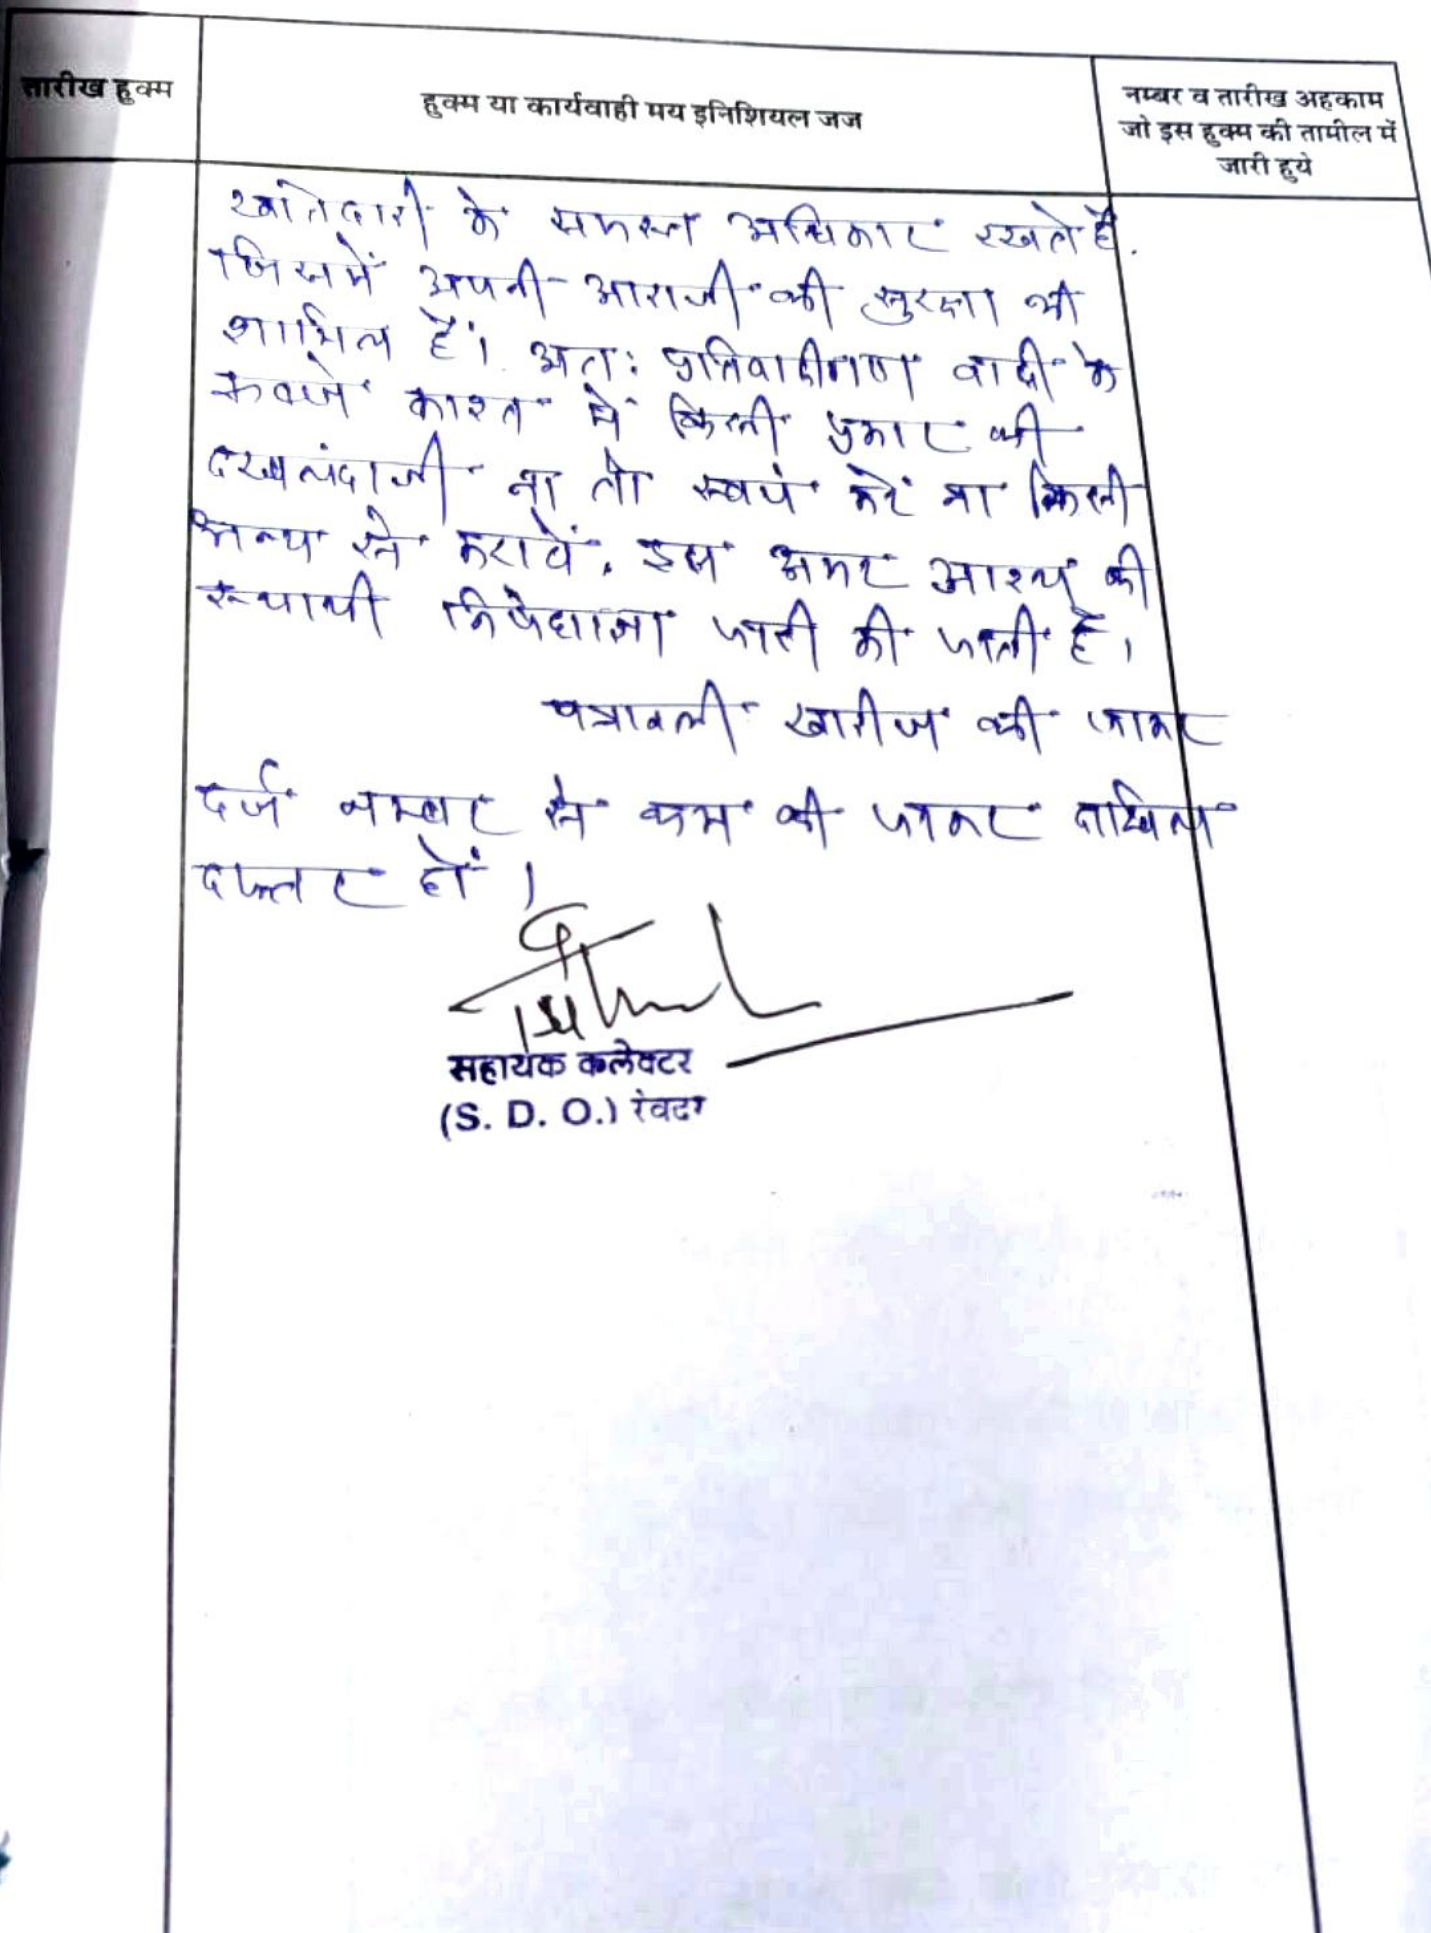 तारीख हुक्म
हुक्म या कार्यवाही मय इनिशियल जज
नम्बर व तारीख अहकाम
जो इस हुक्म की तामील में
जारी हुये
खातेदारी के समस्त अधिकार रखते हैं.
जिसमें अपनी आराजी की सुरक्षा भी
शामिल है। अतः प्रतिवादीगण वादी के
कब्जे काश्त में किसी प्रकार की
दखलंदाजी ना तो स्वयं करें ना किसी
अन्य से करावें, इस अमर आशय की
स्थायी निषेधाज्ञा जारी की जाती है।
पत्रावली खारीज की जाकर
दर्ज नम्बर से कम की जाकर दाखिल
दफ्तर हो।
सहायक कलेक्टर
(S. D. O.)